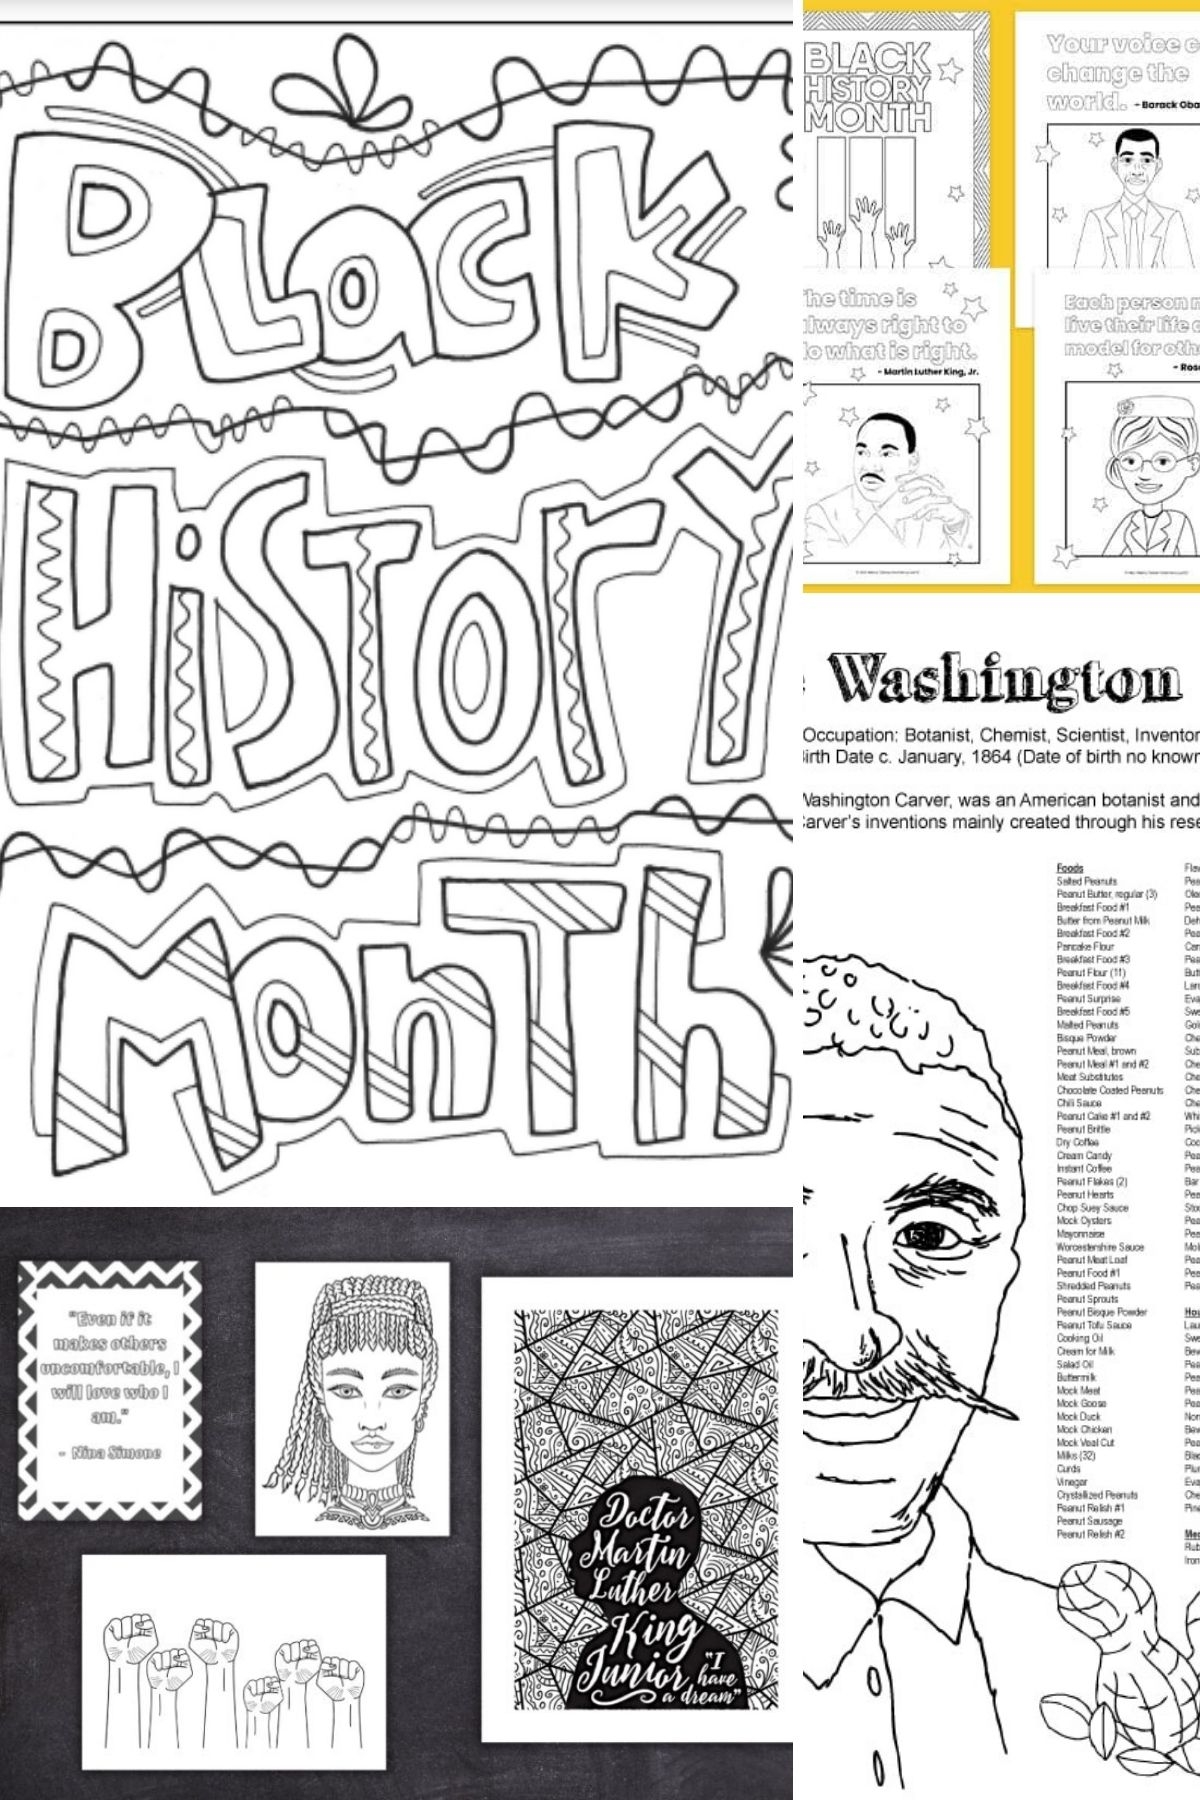 Black
HiSTory
MonTh
BLACK
HISTORY
MONTH
Your voice c
change the
world. - Barack Oba
The time is
always right to
do what is right.
- Martin Luther King, Jr.
Each person m
live their life a
model for oth
- Rosa
Washington
Occupation: Botanist, Chemist, Scientist, Inventor
Birth Date c. January, 1864 (Date of birth no known
Washington Carver, was an American botanist and
Carver's inventions mainly created through his rese
Foods
Salted Peanuts
Peanut Butter, regular (3)
Breakfast Food #1
Butter from Peanut Milk
Breakfast Food #2
Pancake Flour
Breakfast Food #3
Peanut Flour (11)
Breakfast Food #4
Peanut Surprise
Breakfast Food #5
Malted Peanuts
Bisque Powder
Peanut Meal, brown
Peanut Meal #1 and #2
Meat Substitutes
Chocolate Coated Peanuts
Chili Sauce
Peanut Cake #1 and #2
Peanut Brittle
Dry Coffee
Cream Candy
Instant Coffee
Peanut Flakes (2)
Peanut Hearts
Chop Suey Sauce
Mock Oysters
Mayonnaise
Worcestershire Sauce
Peanut Meat Loaf
Peanut Food #1
Shredded Peanuts
Peanut Sprouts
Peanut Bisque Powder
Peanut Tofu Sauce
Cooking Oil
Cream for Milk
Salad Oil
Buttermilk
Mock Meat
Mock Goose
Mock Duck
Mock Chicken
Mock Veal Cut
Milks (32)
Curds
Vinegar
Crystallized Peanuts
Peanut Relish #1
Peanut Sausage
Peanut Relish #2
"Even if it
makes others
uncomfortable, I
will love who I
am."
- Nina Simone
Doctor
Martin
Luther
King
Junior "I
have
a dream"